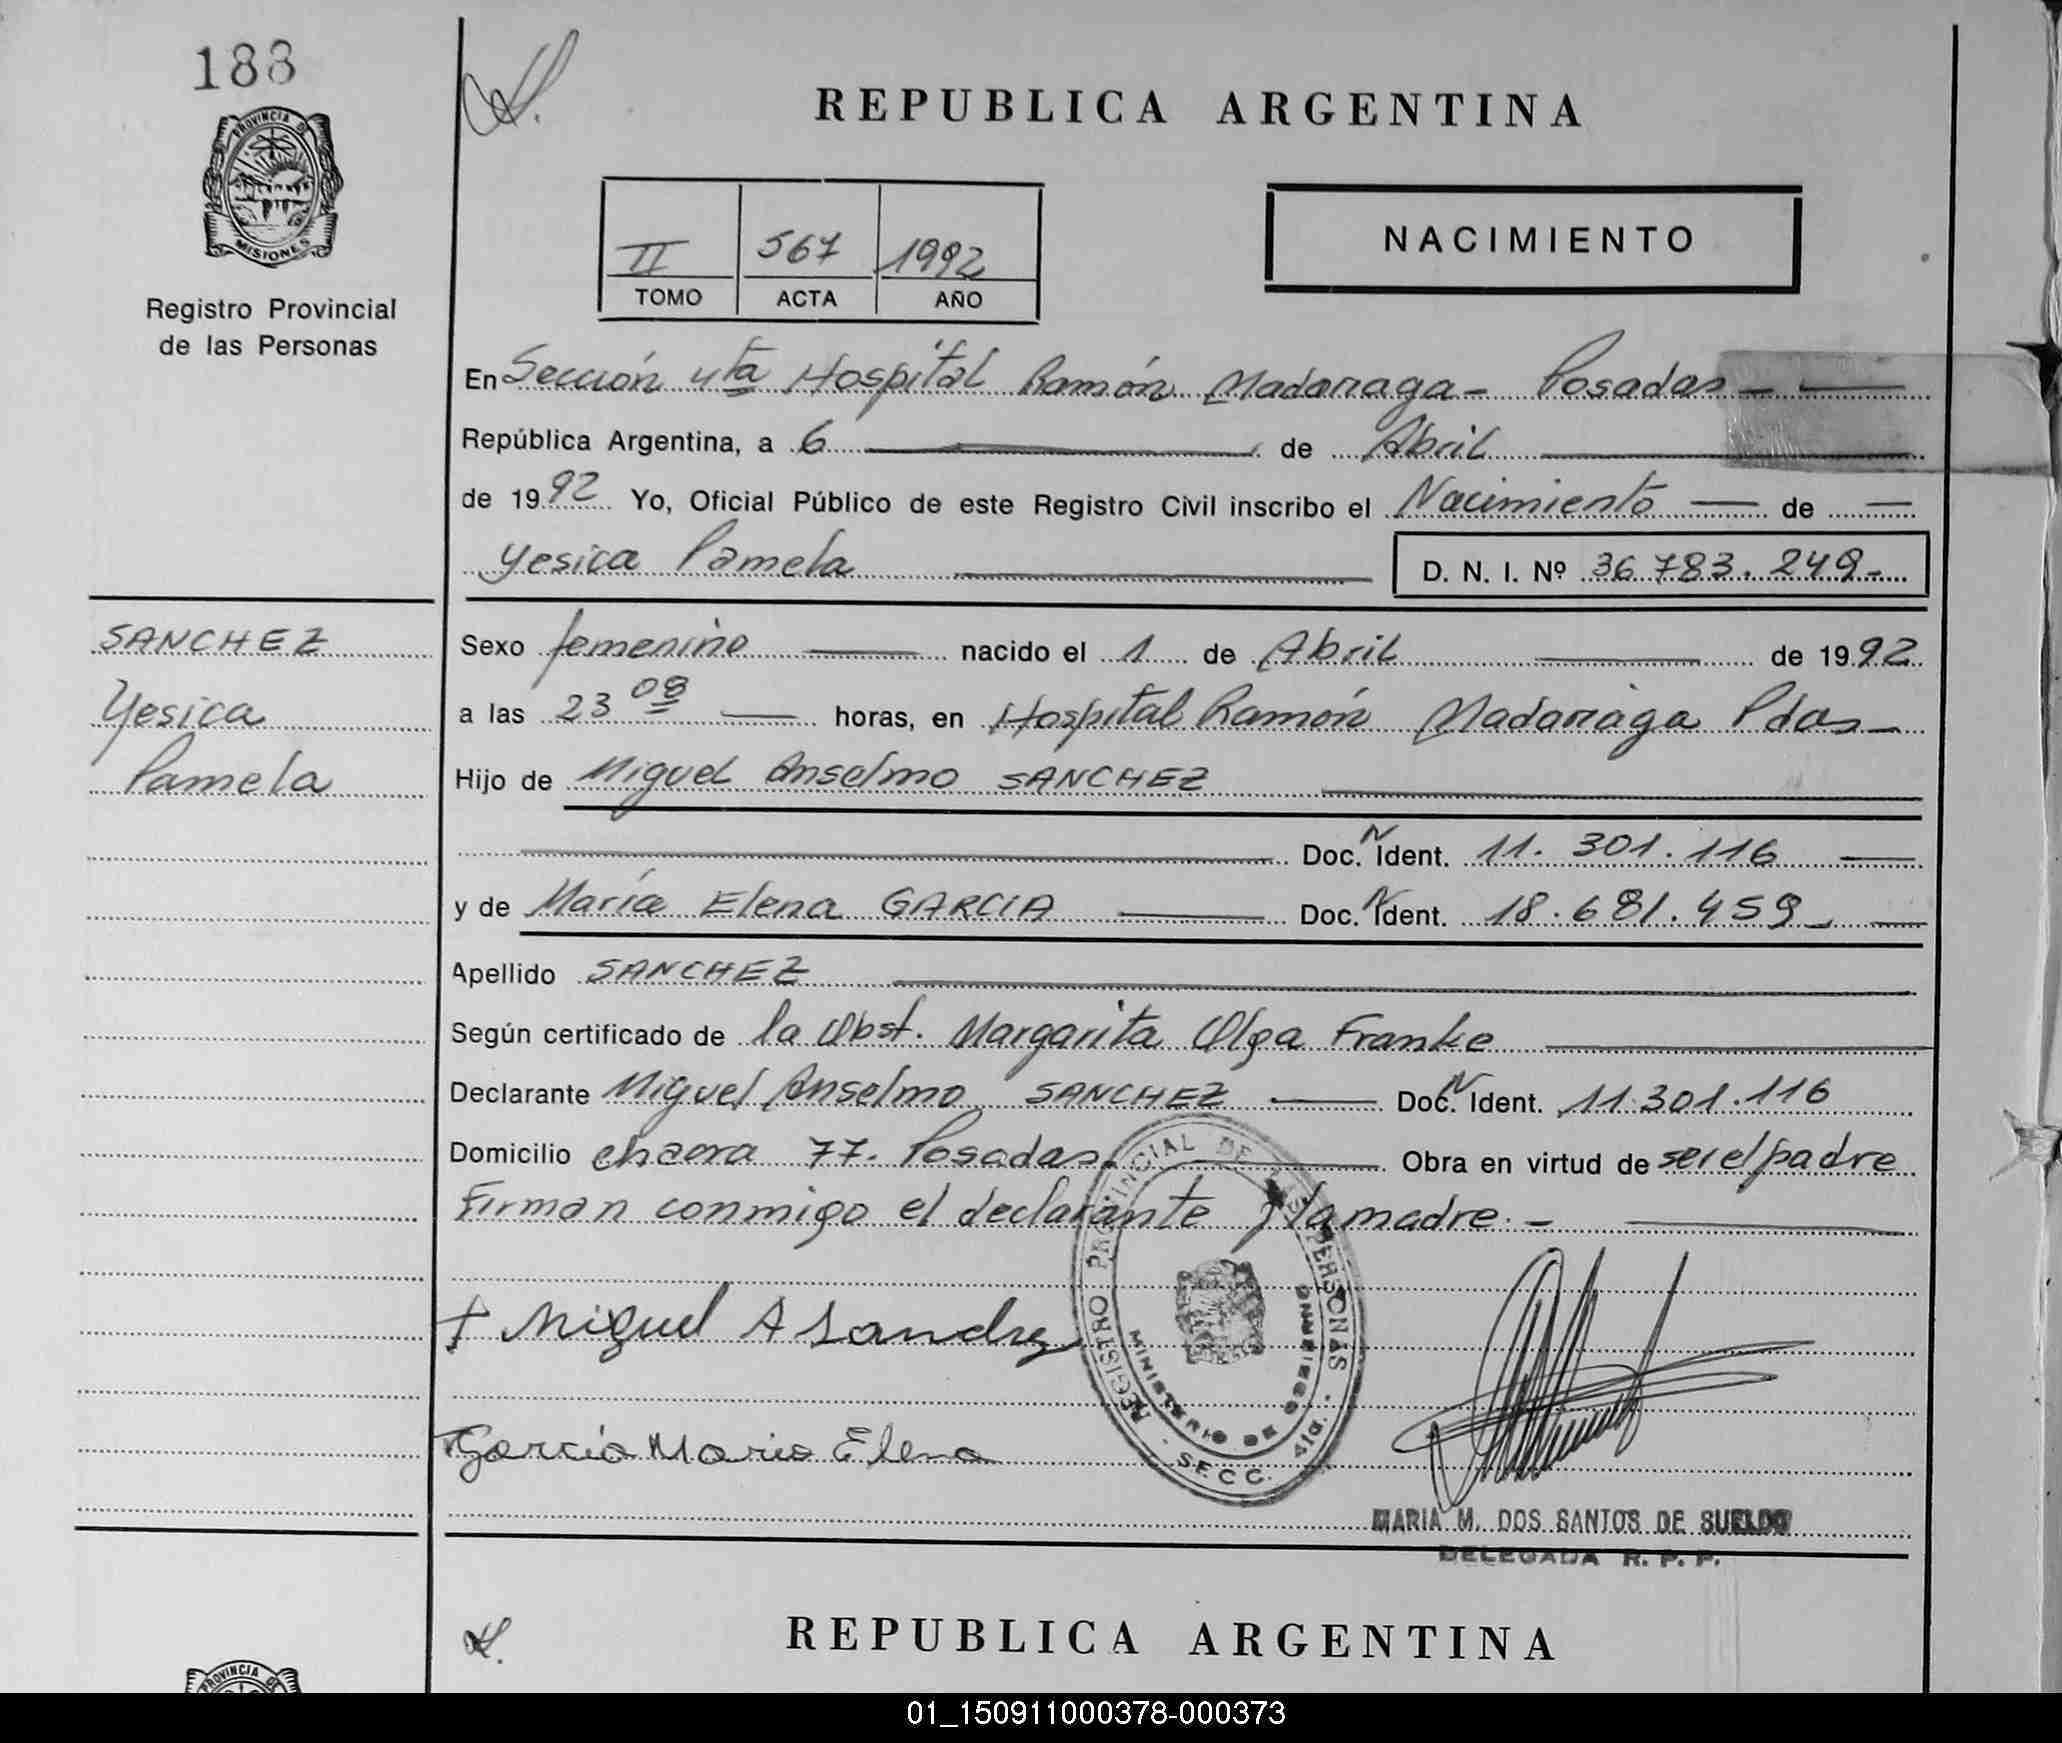 188
PROVINCIA DE
MISIONES
Registro Provincial
de las Personas
REPUBLICA ARGENTINA
II 567 1992
TOMO ACTA AÑO
NACIMIENTO
En Sección 4ta Hospital Ramón Madariaga - Posadas -
República Argentina, a 6 de Abril
de 1992 Yo, Oficial Público de este Registro Civil inscribo el Nacimiento de
Yesica Pamela D. N. I. Nº 36.783.249-
SANCHEZ
Yesica
Pamela
Sexo femenino nacido el 1 de Abril de 1992
a las 23 08 horas, en Hospital Ramón Madariaga Pdas -
Hijo de Miguel Anselmo SANCHEZ
Doc. N Ident. 11.301.116
y de María Elena GARCIA Doc. N Ident. 18.681.459-
Apellido SANCHEZ
Según certificado de la Obst. Margarita Olga Franke
Declarante Miguel Anselmo SANCHEZ Doc. N Ident. 11.301.116
Domicilio chacra 77. Posadas. Obra en virtud de ser el padre
Firman conmigo el declarante y la madre. -
REGISTRO PROVINCIAL DE LAS PERSONAS
MINISTERIO DE GOBIERNO
SECC. 4ta.
Miguel A Sanchez
Garcia Maria Elena
MARIA M. DOS SANTOS DE SUELDO
DELEGADA R. P. P.
REPUBLICA ARGENTINA
PROVINCIA DE
01_150911000378-000373